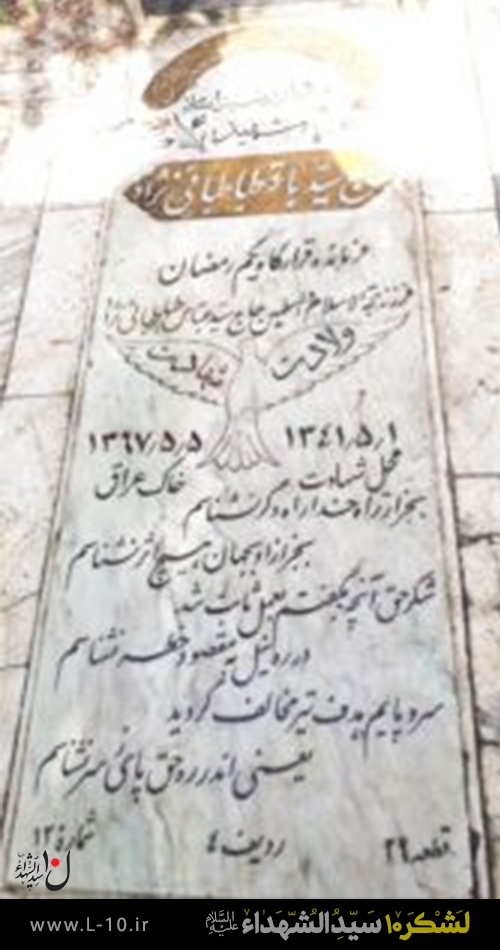 شهید
سید باقر طباطبائی نژاد
فرمانده قرارگاه یکم رمضان
فرزند حجة الاسلام والمسلمین حاج سید عباس طباطبائی نژاد
ولادت شهادت
۱۳۴۱٫۵٫۱ ۱۳۶۷٫۵٫۵
محل شهادت خاک عراق
بجز از راه خدا راه دگر نشناسم
بجز از او بجهان هیچ اثر نشناسم
شکر حق آنچه بگفتم بعمل ثابت شد
در ره نیل بمقصود خطر نشناسم
سر و پایم هدف تیر مخالف گردید
یعنی اندر ره حق پای ز سر نشناسم
قطعه ۲۹ ردیف ۴ شماره ۱۲
ل۱۰ سیدالشهداء
www.L-10.ir
لشکر۱۰ سَیّدِالشُّهَداء علیه‌السلام